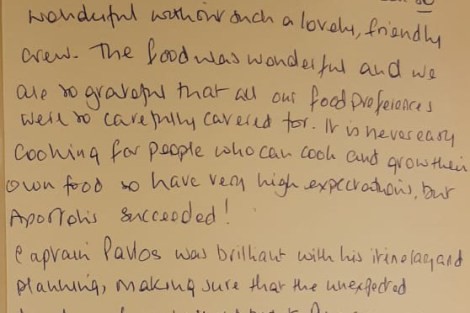 wonderful without such a lovely, friendly
crew. The food was wonderful and we
are so grateful that all our food preferences
were so carefully catered for. It is never easy
cooking for people who can cook and grow their
own food so have very high expectations, but
Apostolis succeeded!
Captain Pavlos was brilliant with his itinerary and
planning, making sure that the unexpected